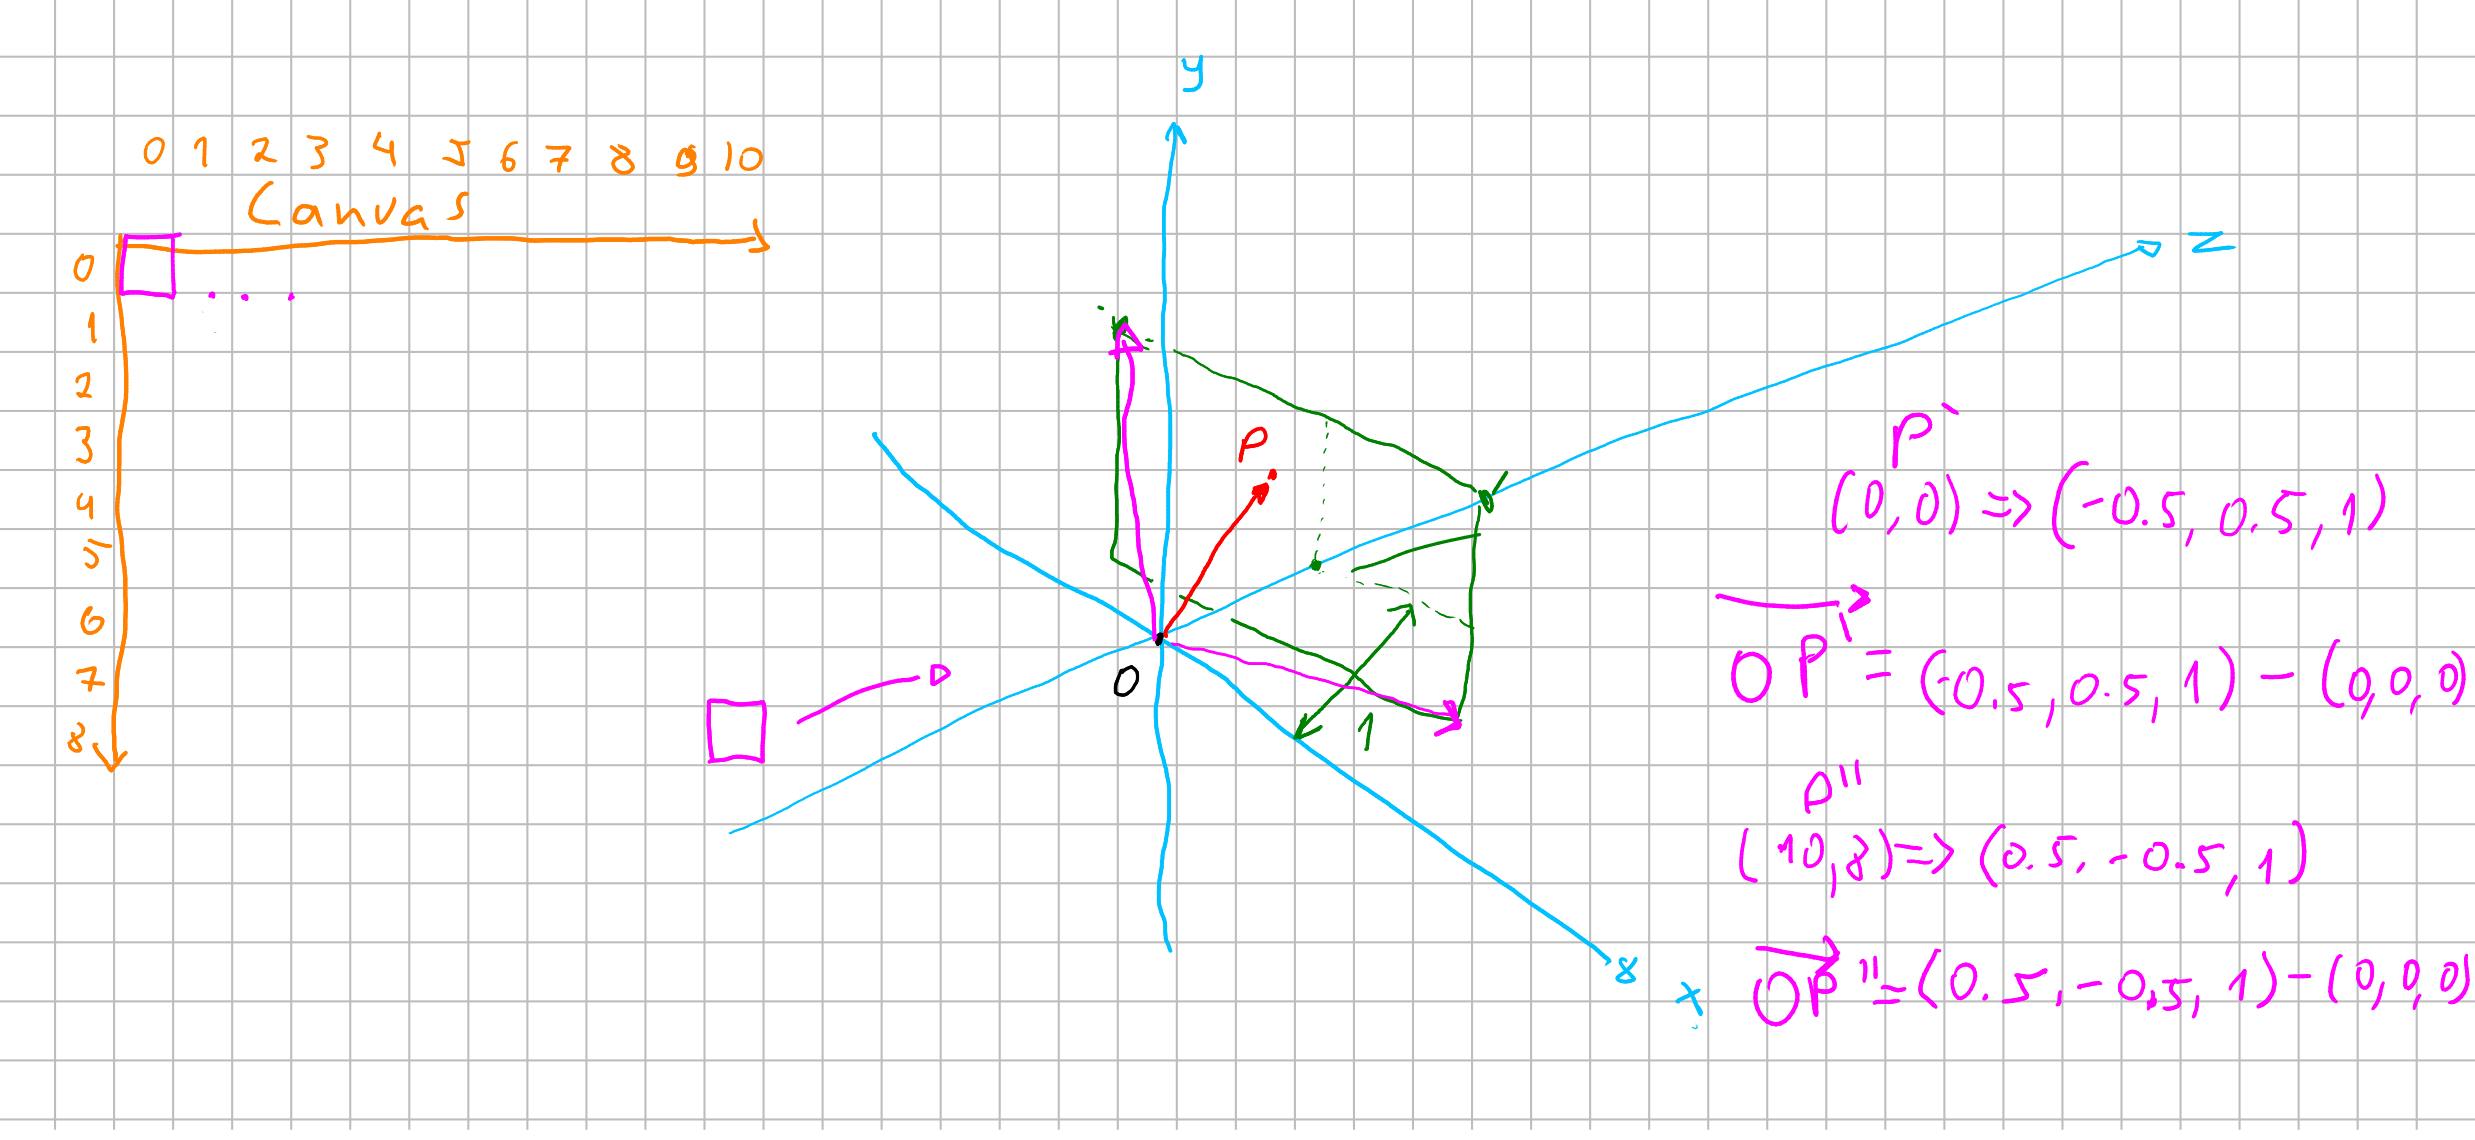 y
0 1 2 3 4 5 6 7 8 9 10
Canvas
z
0
1
2
3
4
5
6
7
8
P
O
1
x
P'
(0,0) => (-0.5, 0.5, 1)
OP' = (-0.5, 0.5, 1) - (0,0,0)
P''
(10,8) => (0.5, -0.5, 1)
OP'' = (0.5, -0.5, 1) - (0,0,0)